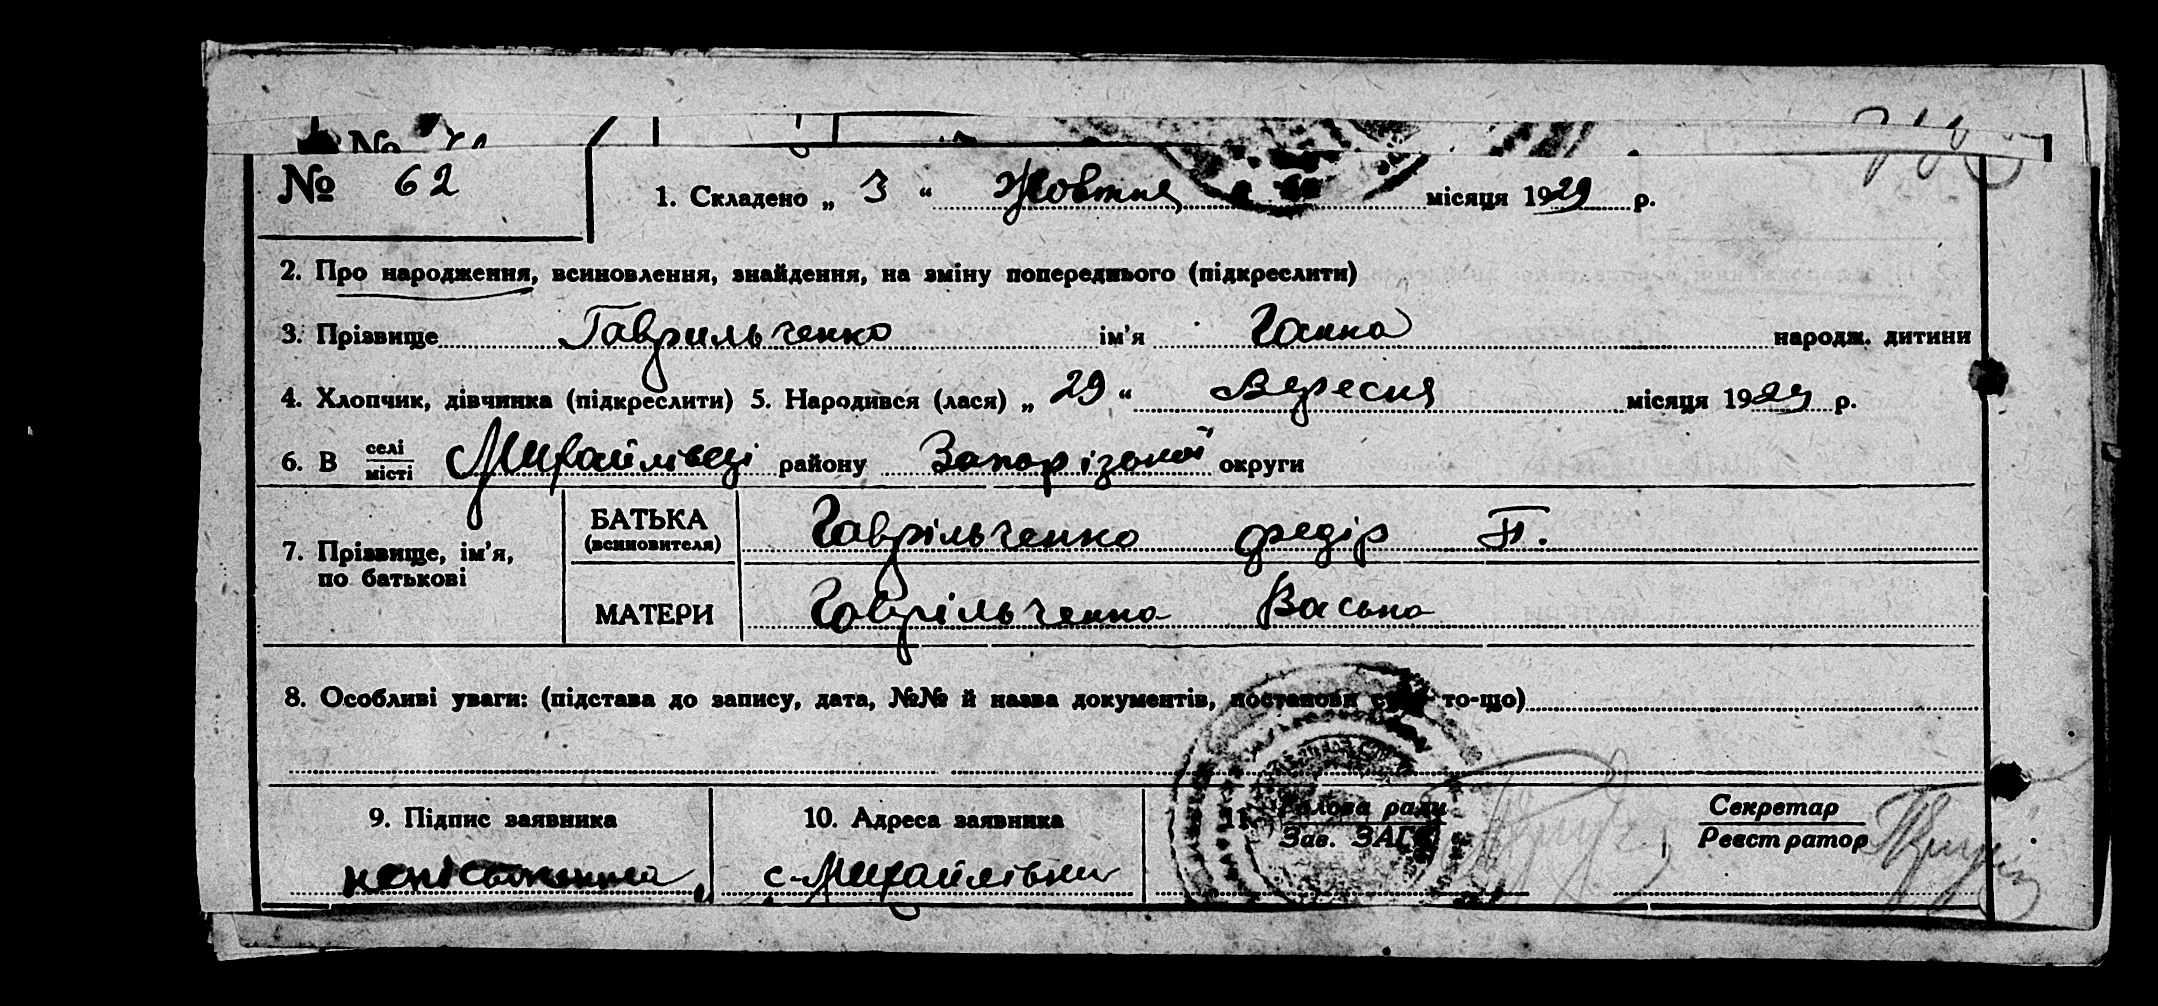 № 62
1. Складено „ 3 “ Жовтня місяця 1929 р.
2. Про народження, всиновлення, знайдення, на зміну попереднього (підкреслити)
3. Прізвище Гаврильченко ім’я Ганна народж. дитини
4. Хлопчик, дівчинка (підкреслити) 5. Народився (лася) „ 29 “ Вересня місяця 1929 р.
6. В селі місті Михайлівці району Запорізької округи
7. Прізвище, ім’я, по батькові
БАТЬКА (всиновителя) Гаврільченко Федір П.
МАТЕРИ Гаврільченко Васька
8. Особливі уваги: (підстава до запису, дата, №№ й назва документів, постанови суду то-що)
9. Підпис заявника
10. Адреса заявника
11. Голова ради Зав. ЗАГС
Секретар Реєстратор
с. Михайлівки